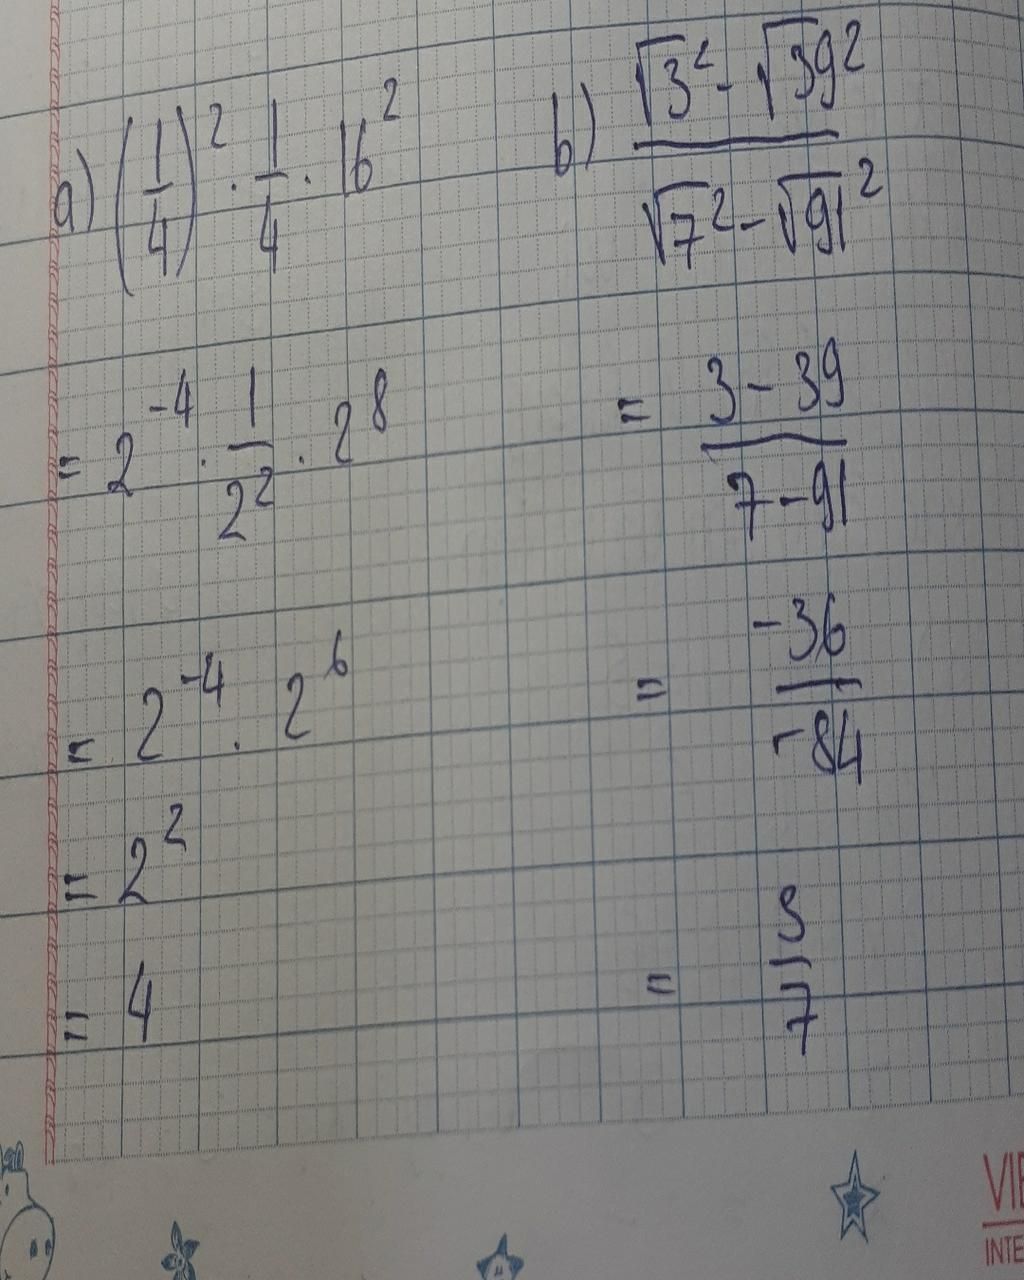 a) (1/4)² · 1/4 · 16²
= 2⁻⁴ · 1/2² · 2⁸
= 2⁻⁴ · 2⁶
= 2²
= 4
b) (√3² - √39²)/(√7² - √91²)
= (3 - 39)/(7 - 91)
= -36/-84
= 3/7